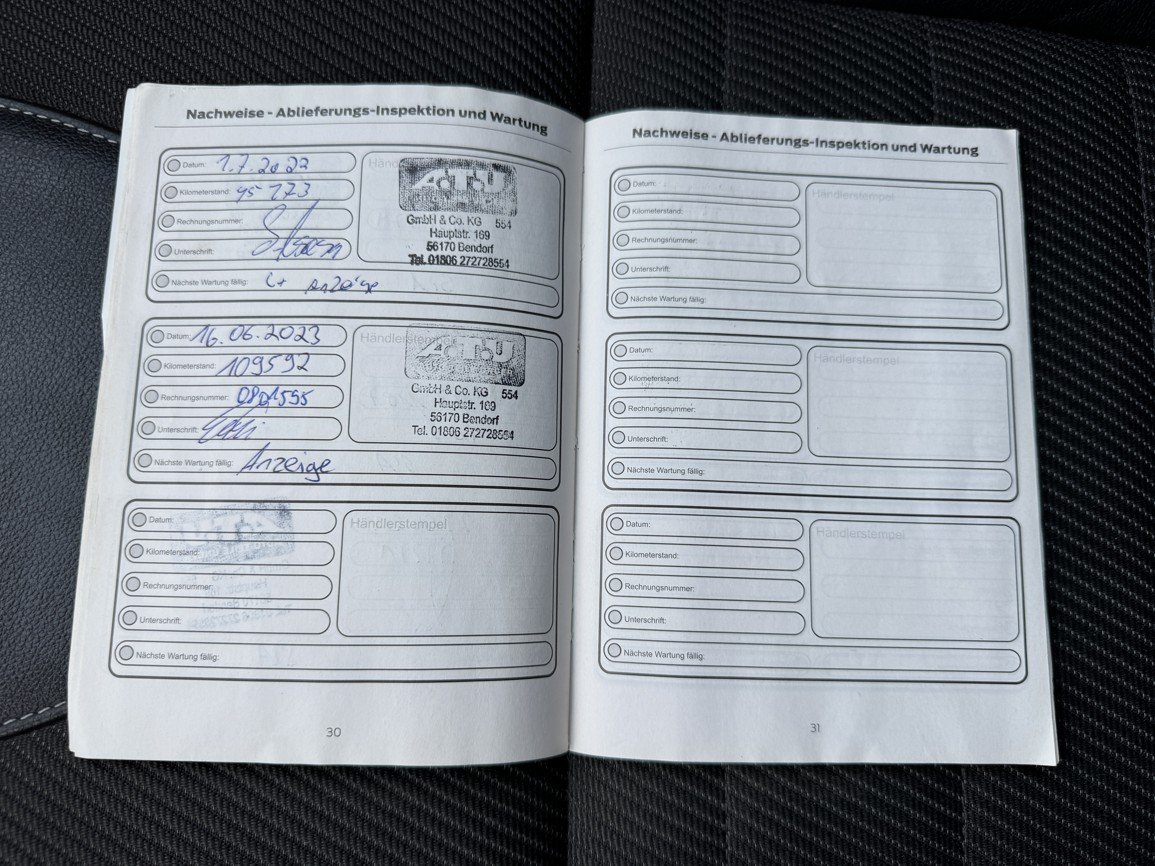 Nachweise - Ablieferungs-Inspektion und Wartung
Datum: 1.7.2022
Kilometerstand: 95 173
Rechnungsnummer:
Unterschrift:
Nächste Wartung fällig: Lt Anzeige
Händ
A.T.U
GmbH & Co. KG 554
Hauptstr. 169
56170 Bendorf
Tel. 01806 272728554
Datum: 16.06.2023
Kilometerstand: 109592
Rechnungsnummer:
Unterschrift:
Nächste Wartung fällig: Anzeige
Händlerstempel
A.T.U
GmbH & Co. KG 554
Hauptstr. 169
56170 Bendorf
Tel. 01806 272728554
Datum:
Kilometerstand:
Rechnungsnummer:
Unterschrift:
Nächste Wartung fällig:
Händlerstempel
30
Nachweise - Ablieferungs-Inspektion und Wartung
Datum:
Kilometerstand:
Rechnungsnummer:
Unterschrift:
Nächste Wartung fällig:
Händlerstempel
Datum:
Kilometerstand:
Rechnungsnummer:
Unterschrift:
Nächste Wartung fällig:
Händlerstempel
Datum:
Kilometerstand:
Rechnungsnummer:
Unterschrift:
Nächste Wartung fällig:
Händlerstempel
31